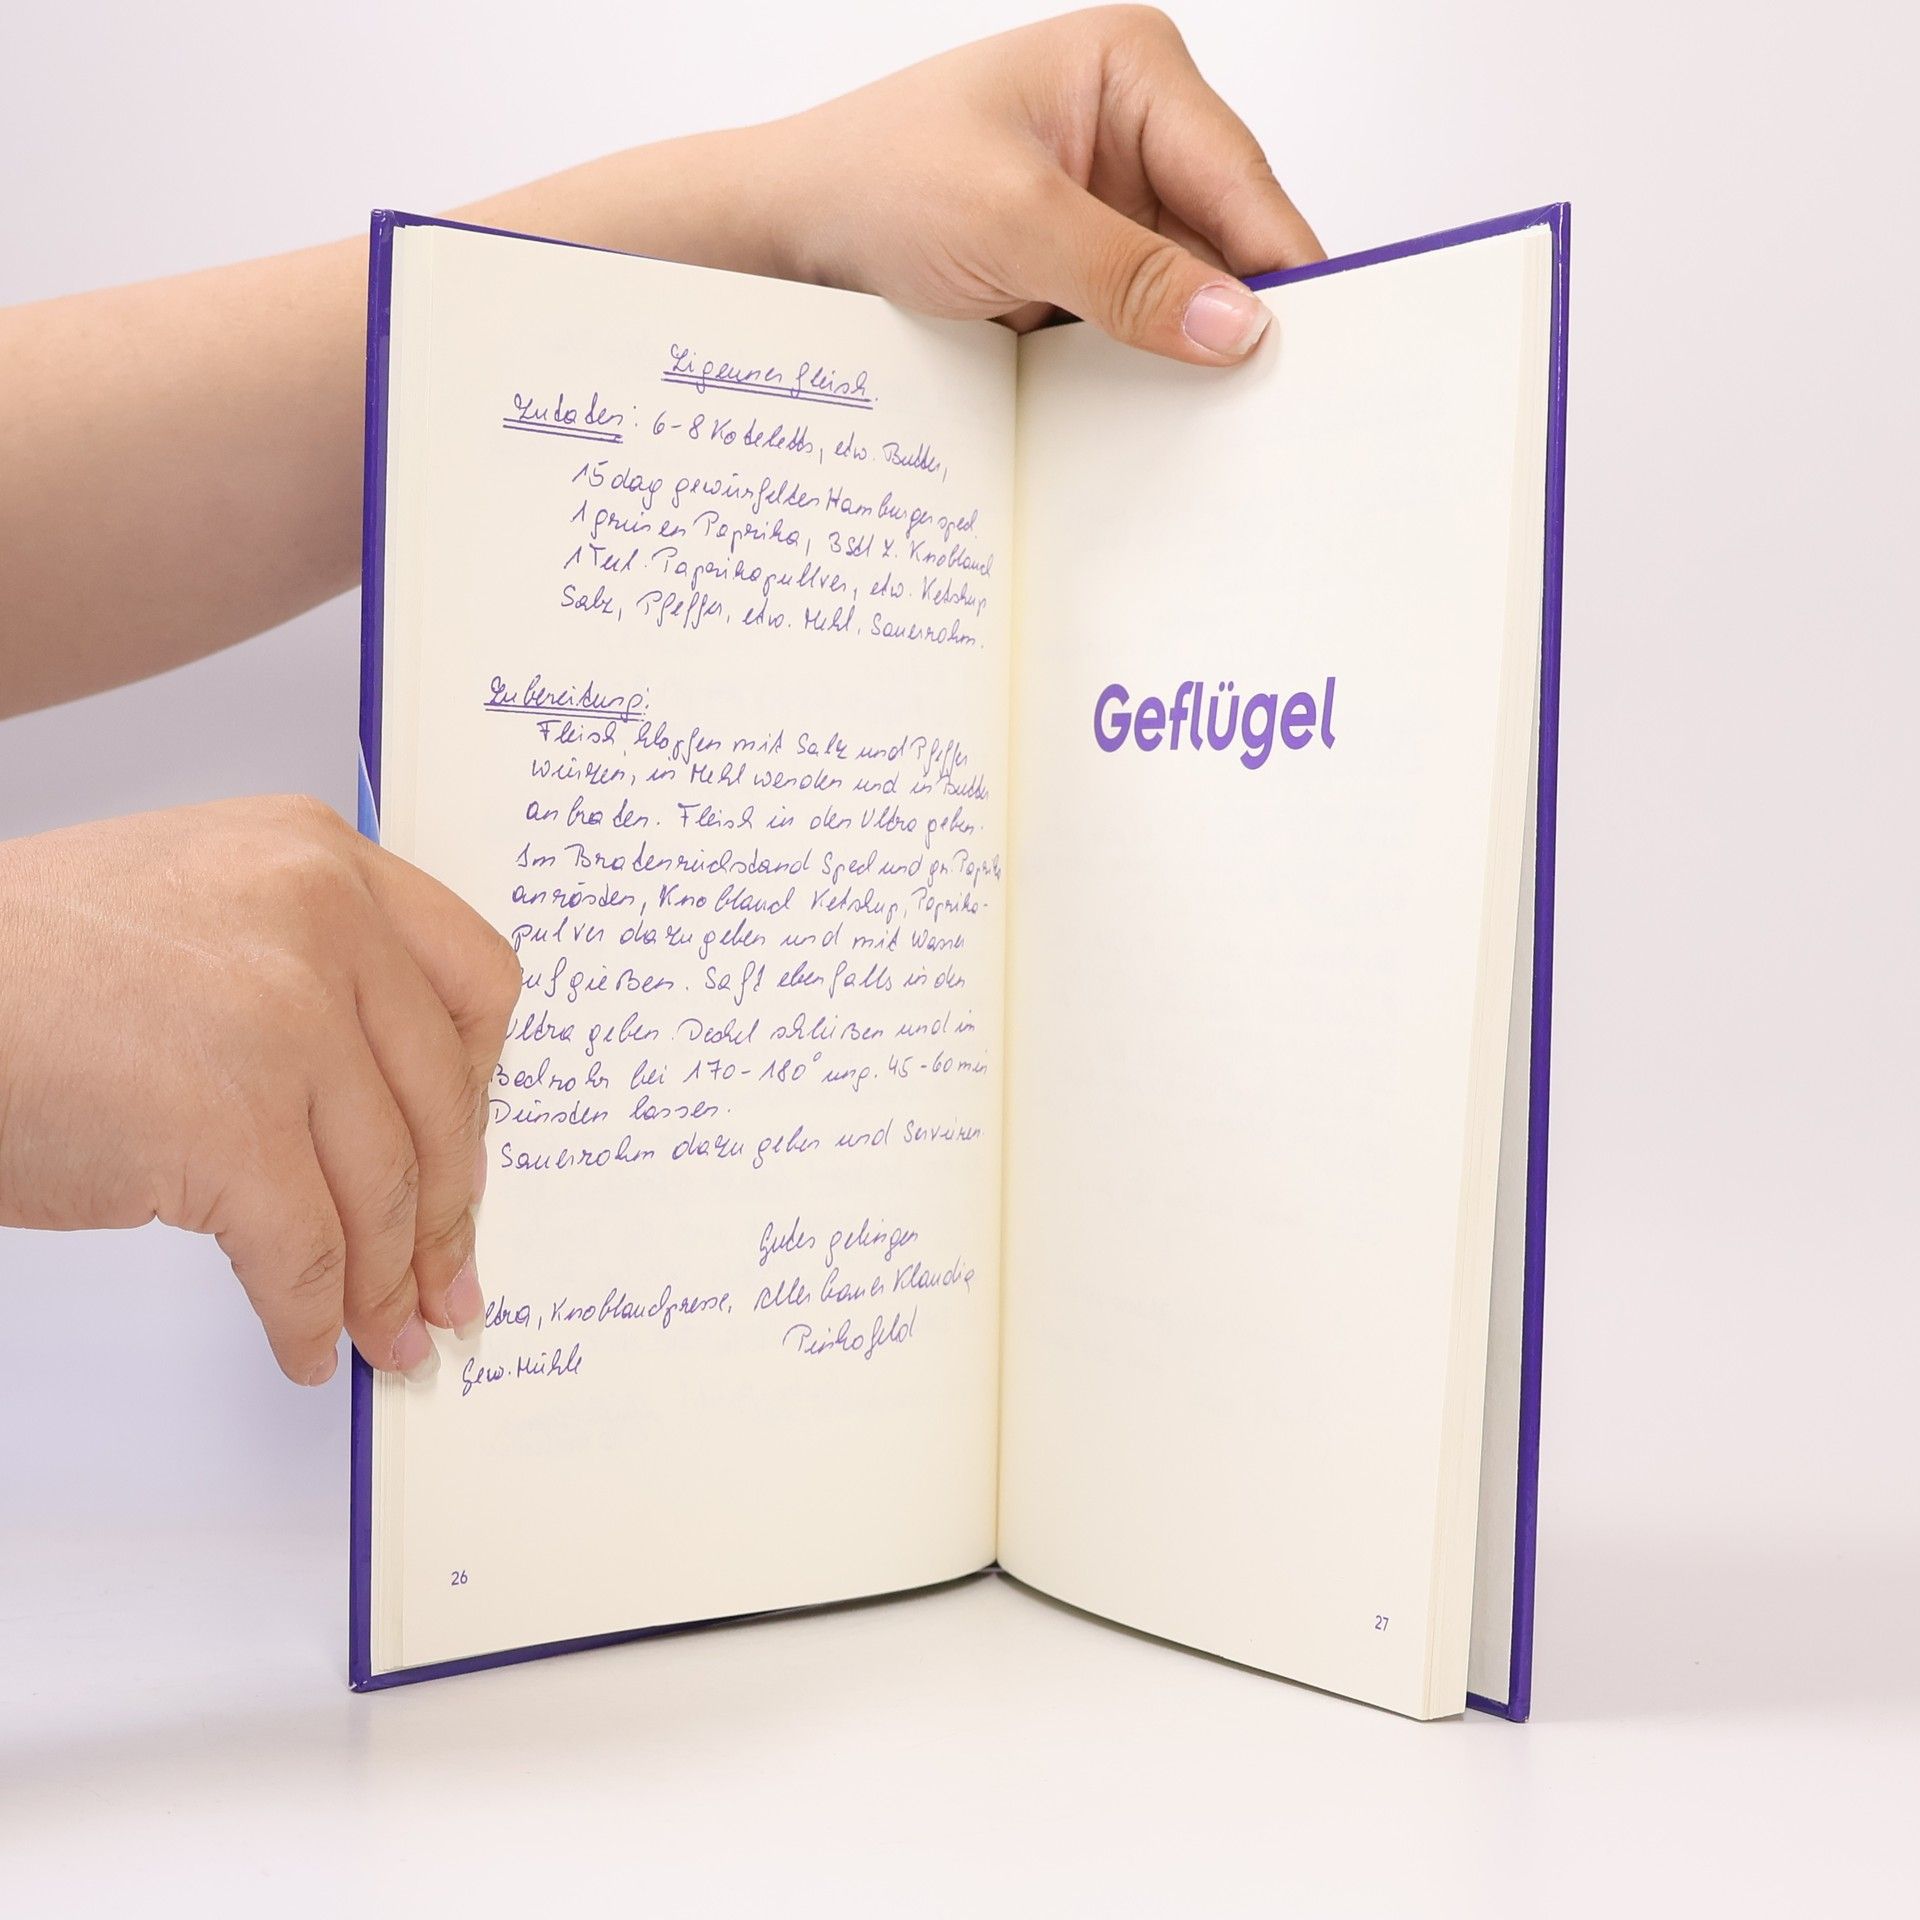 Zigeunerfleisch.
Zutaten: 6-8 Koteletts, etw. Butter,
15 dag gewürfelten Hamburgerspeck
1 grünen Paprika, 3 Stk Z. Knoblauch
1 Teel. Paprikapullver, etw. Ketchup
Salz, Pfeffer, etw. Mehl, Sauerrahm.
Zubereitung:
Fleisch klopfen mit Salz und Pfeffer
würzen, in Mehl wenden und in Butter
anbraten. Fleisch in den Ultra geben.
Im Bratenrückstand Speck und gr. Paprika
anrösten, Knoblauch Ketchup, Paprika-
pulver dazu geben und mit Wasser
aufgießen. Saft ebenfalls in den
Ultra geben. Deckel schließen und im
Backrohr bei 170-180° ung. 45-60 min
Dünsten lassen.
Sauerrahm dazu geben und Servieren.
Gutes gelingen
Ultra, Knoblauchpresse, Allerbauer Klaudia
Gew. Mühle
Pinkafeld
26
Geflügel
27